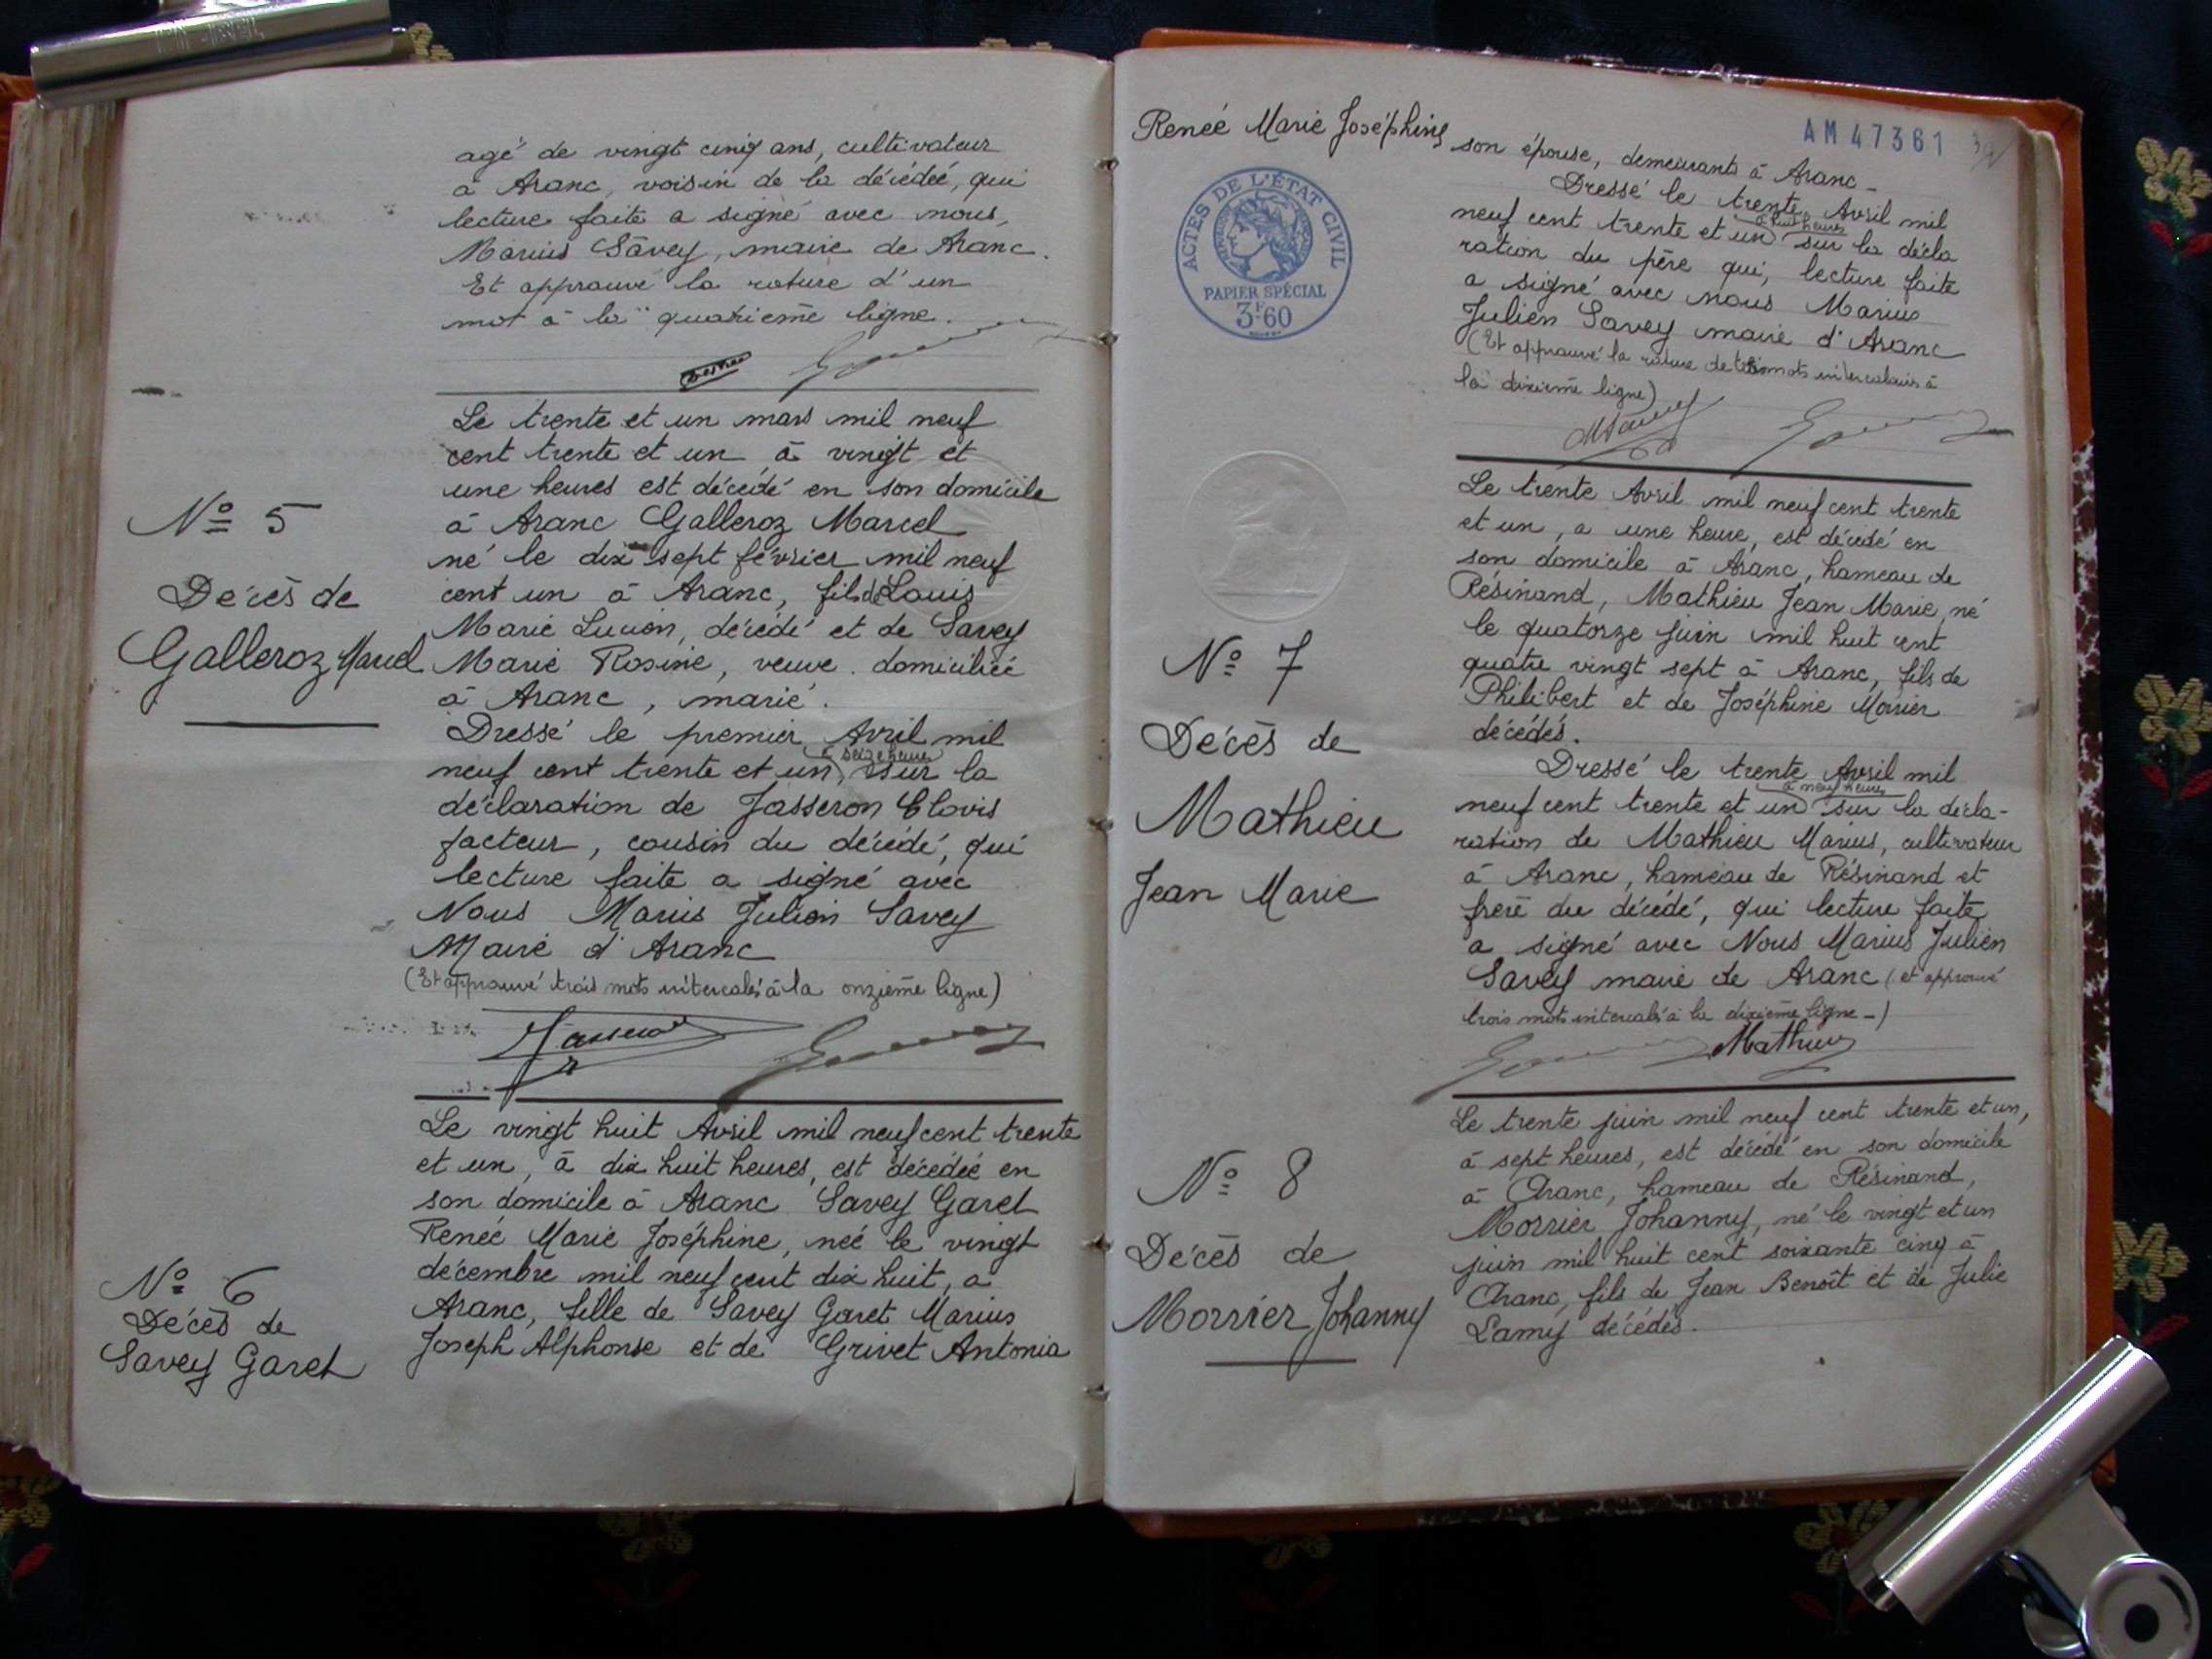 agé de vingt cinq ans, cultivateur
à Aranc, voisin de la décédée, qui
lecture faite a signé avec nous,
Marius Savey, maire de Aranc.
Et approuvé la rature d'un
mot à la quatrième ligne.
N° 5
Décès de
Galleroz Marcel
Le trente et un mars mil neuf
cent trente et un à vingt et
une heures est décédé en son domicile
à Aranc Galleroz Marcel
né le dix sept février mil neuf
cent un à Aranc, fils de Louis
Marie Lucien, décédé et de Savey
Marie Rosine, veuve. domiciliée
à Aranc, marié.
Dressé le premier Avril mil
à seize heures
neuf cent trente et un, sur la
déclaration de Jasseron Clovis
facteur, cousin du décédé, qui
lecture faite a signé avec
Nous Marius Julien Savey
Maire d'Aranc
(Et approuvé trois mots intercalés à la onzième ligne)
Jasseron
N° 6
Décès de
Savey Garet
Le vingt huit Avril mil neuf cent trente
et un, à dix huit heures, est décédée en
son domicile à Aranc Savey Garet
Renée Marie Joséphine, née le vingt
décembre mil neuf cent dix huit, a
Aranc, fille de Savey Garet Marius
Joseph Alphonse et de Grivet Antonia
Renée Marie Joséphine
AM 47361
ACTES DE L'ÉTAT CIVIL
PAPIER SPÉCIAL
3F60
son épouse, demeurants à Aranc-
Dressé le trente Avril mil
à huit heures
neuf cent trente et un sur la décla
ration du père qui, lecture faite
a signé avec nous Marius
Julien Savey maire d'Aranc
(Et approuvé la rature de trois mots intercalaires à
la dixième ligne)
N° 7
Décès de
Mathieu
Jean Marie
Le trente Avril mil neuf cent trente
et un, a une heure, est décédé en
son domicile à Aranc, hameau de
Résinand, Mathieu Jean Marie, né
le quatorze juin mil huit cent
quatre vingt sept à Aranc, fils de
Philibert et de Joséphine Morrier
décédés.
Dressé le trente Avril mil
à neuf heures
neuf cent trente et un sur la décla-
ration de Mathieu Marius, cultivateur
à Aranc, hameau de Résinand et
frère du décédé, qui lecture faite
a signé avec Nous Marius Julien
Savey maire de Aranc (et approuvé
trois mots intercalés à la dixième ligne-)
Mathieu
N° 8
Décès de
Morrier Johanny
Le trente juin mil neuf cent trente et un,
à sept heures, est décédé en son domicile
à Aranc, hameau de Résinand,
Morrier Johanny, né le vingt et un
juin mil huit cent soixante cinq à
Aranc, fils de Jean Benoît et de Julie
Lamy décédés.